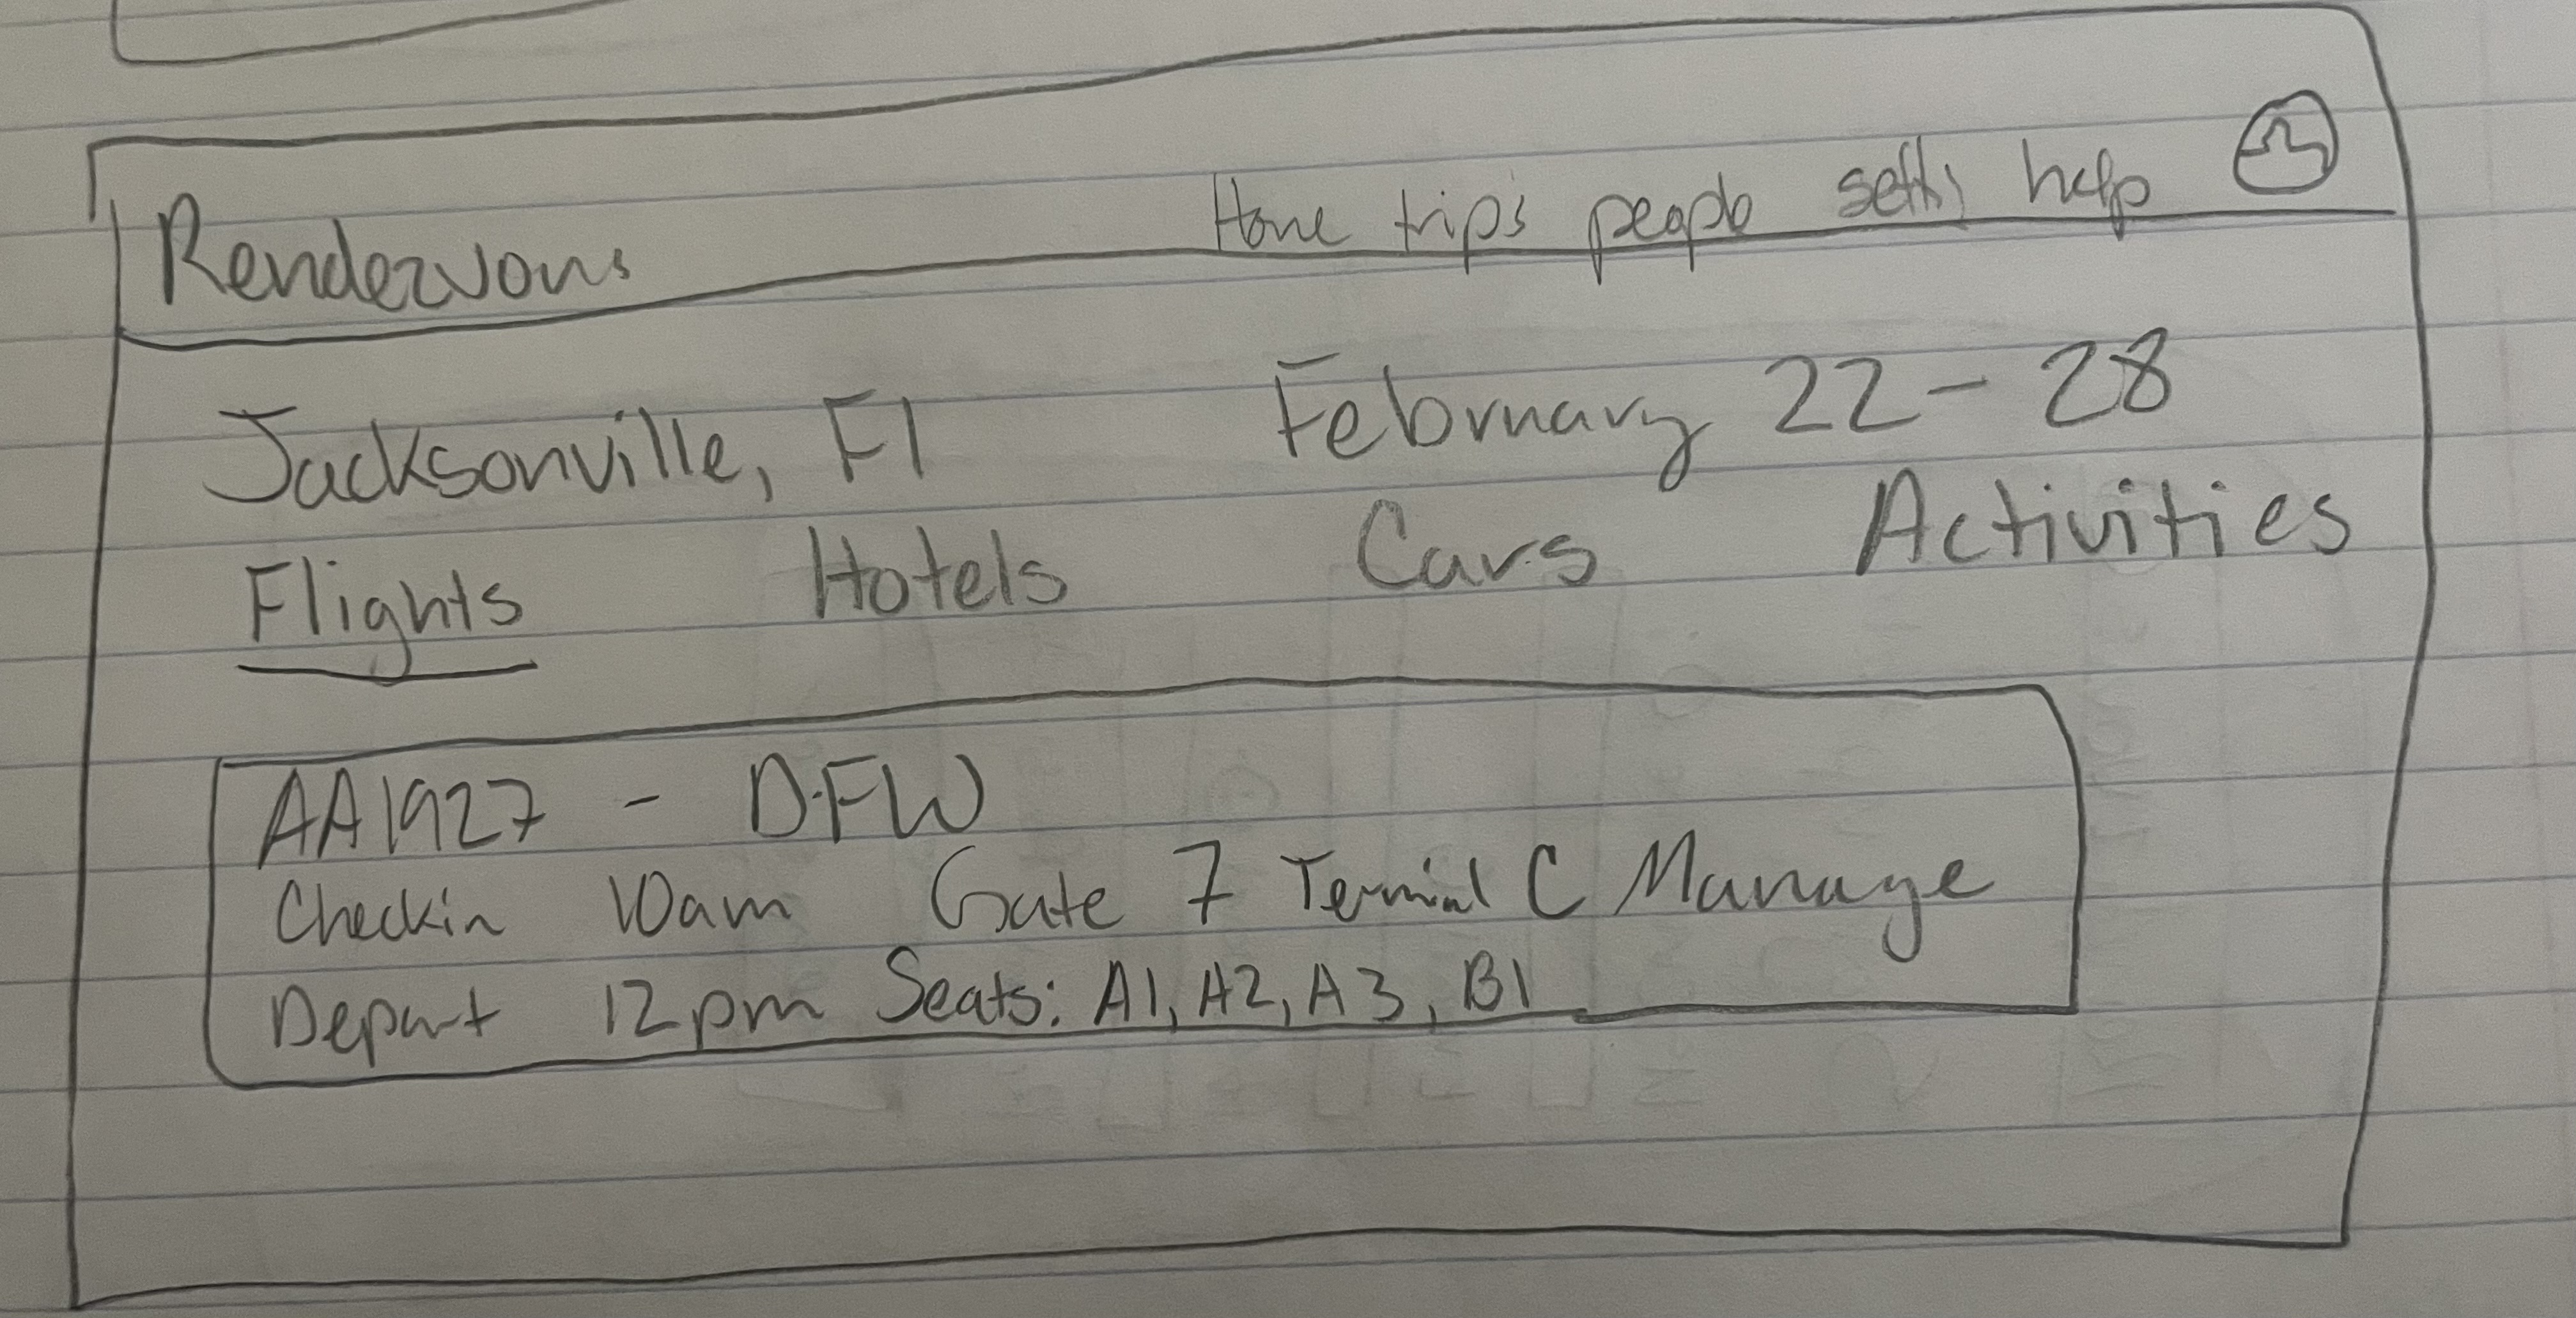 Rendezvous Home trips people help
Jacksonville, Fl February 22 - 28
Flights Hotels Cars Activities
AA1927 - DFW
Checkin 10am Gate 7 Terminal C Manage
Depart 12pm Seats: A1, A2, A3, B1